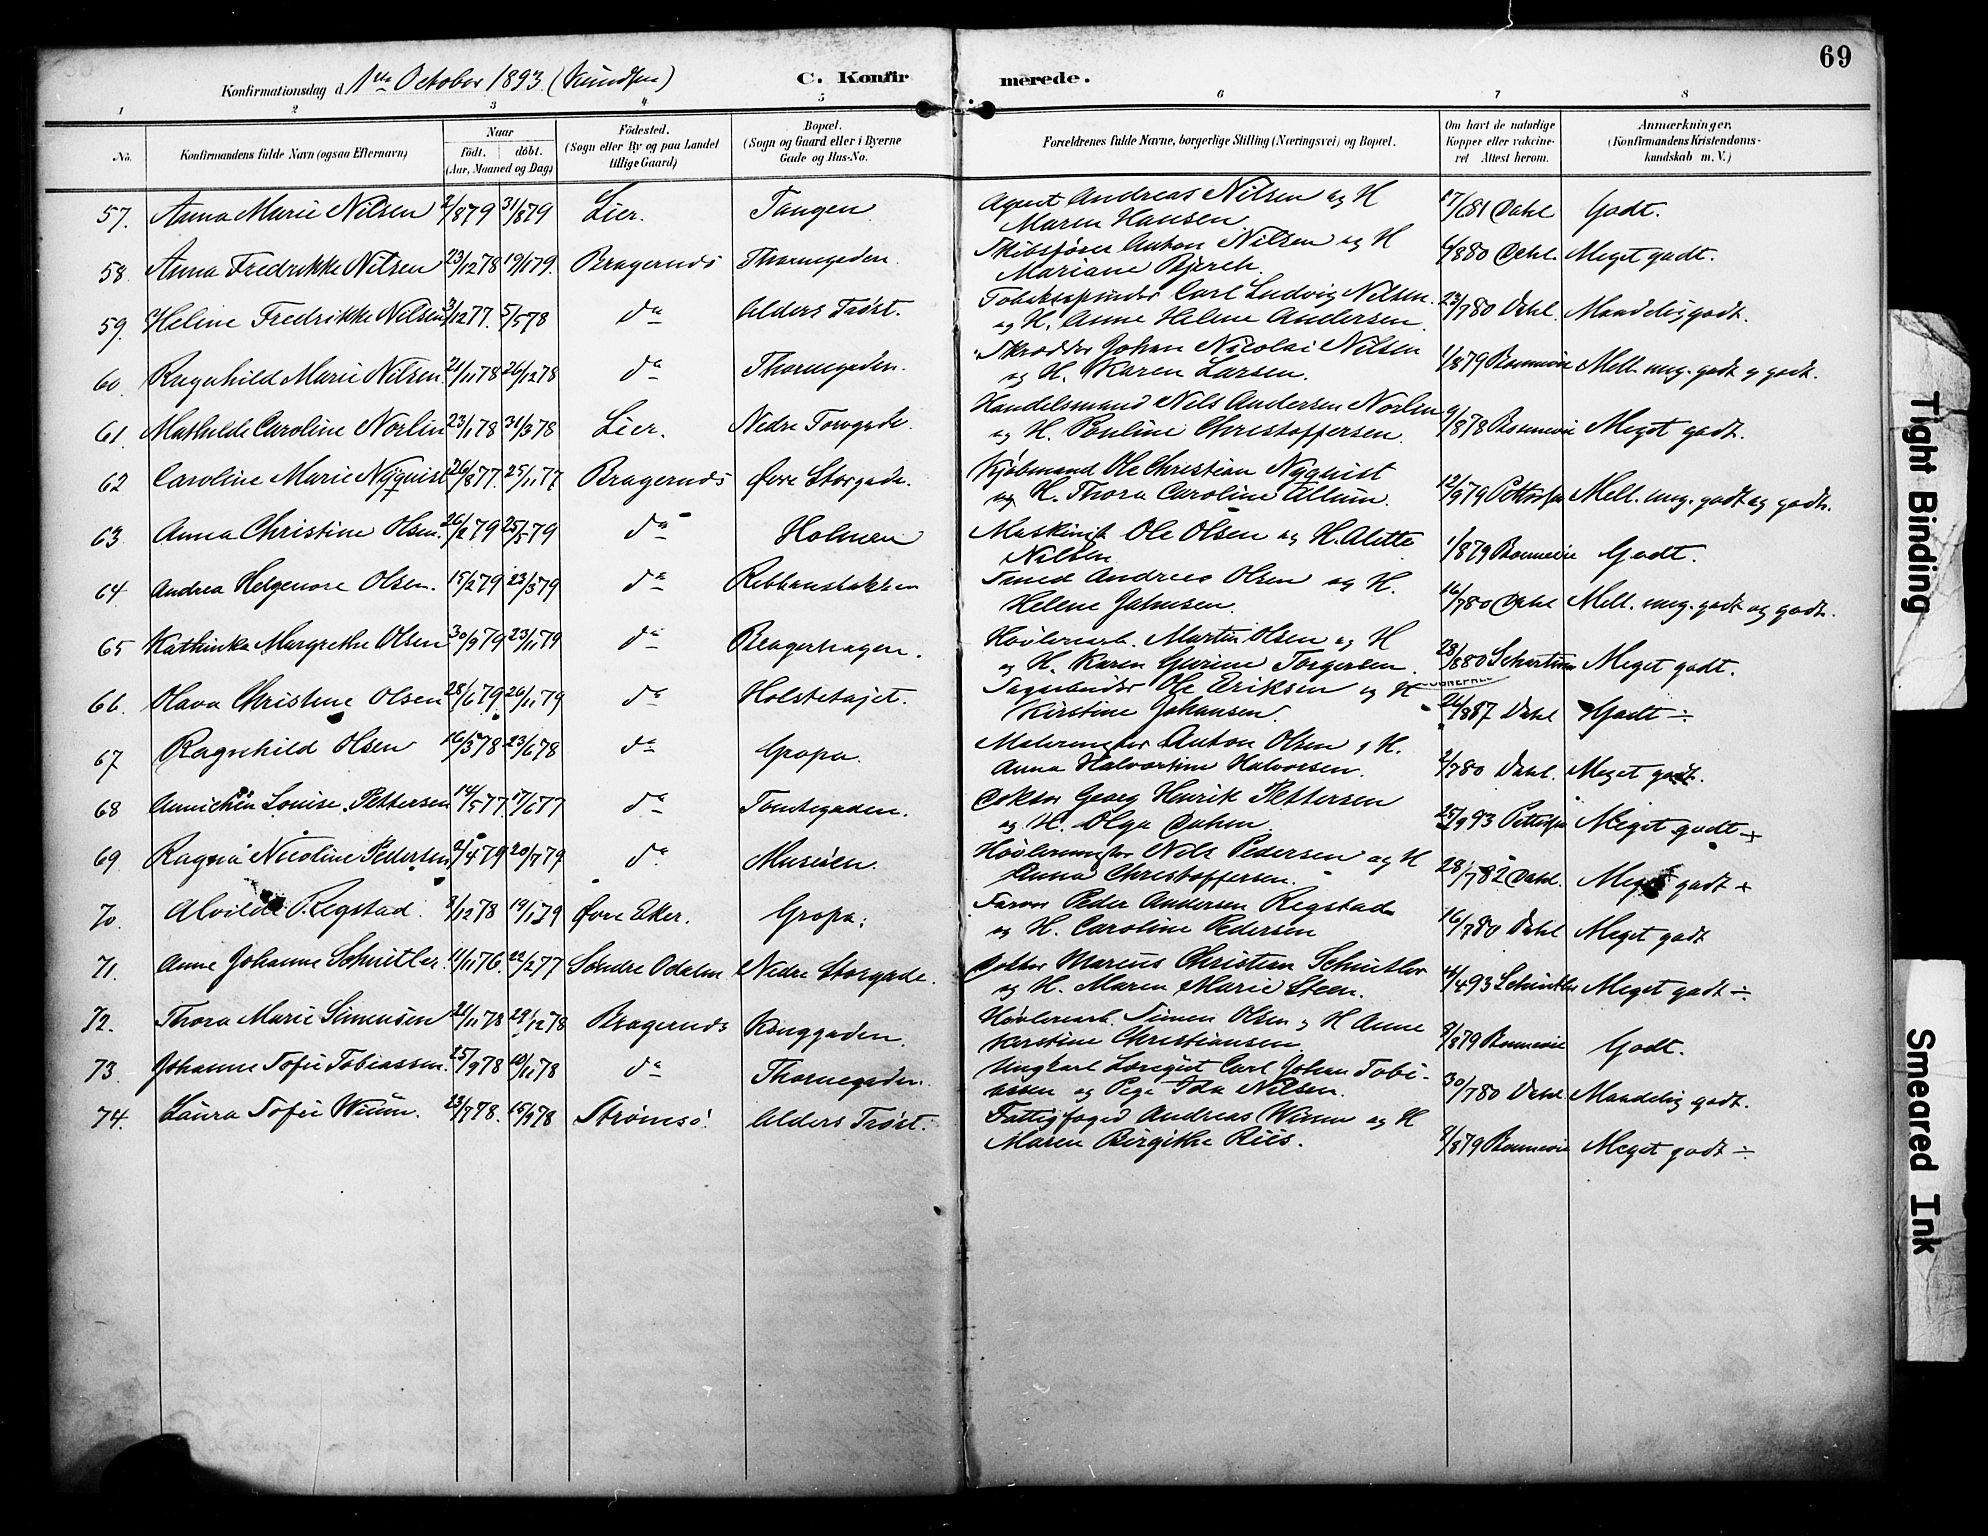 69
Konfirmationsdag d. 1ste October 1893. C. Konfirmerede.
1 2 3 4 5 6 7 8
No. Konfirmandens fulde Navn (ogsaa Efternavn) Naar födt. döbt. (Aar, Maaned og Dag) Födested. (Sogn eller By og paa Landet tillige Gaard) Bopæl. (Sogn og Gaard eller i Byerne Gade og Hus-No. Forældrenes fulde Navne, borgerlige Stilling (Næringsvei) og Bopæl. Om havt de naturlige Kopper eller vaccineret. Attest herom. Anmærkninger. (Konfirmandens Kristendomskundskab m. V.)
57. Anna Marie Nilsen 2/879 31/879 Lier. Tangen Agent Andreas Nilsen og H Maren Hansen 17/681 Dahl Godt.
58. Anna Fredrikke Nilsen 23/1278 19/179. Bragernds Thornegaden. Skibsfører Anton Nilsen og H Mariane Bjerch. 4/880 Dahl. Meget godt.
59. Heline Fredrikke Nilsen 3/1277. 5/578 da Alders Trøst. Tobaksspinder Carl Ludvig Nilsen. og H. Anne Helene Andersen 23/780 Dahl. Maadelig godt.
60. Ragnhild Marie Nilsen 21/1178 26/1278 da Thornegaden. Skrædder Johan Nicolai Nilsen og H. Karen Larsen. 1/879 Bonnevie Mell. meg. godt og godt.
61. Mathilde Caroline Norlin 23/178 31/378 Lier. Nedre Torvgade. Handelsmand Nels Andersen Norlin og H. Pauline Christoffersen. 9/878 Bonnevie Meget godt.
62 Caroline Marie Nyquist 26/877. 25/1177 Bragernds Øvre Storgade. Kjøbmand Ole Christian Nyquist og H. Thora Caroline Allum. 12/979 Mell. meg. godt og godt.
63. Anna Christine Olsen. 26/279 25/579 da Holmen Maskinist Ole Olsen og H. Alette Nilsen 1/879 Bonnevie Godt.
64. Andrea Helgenore Olsen. 15/279 23/379 da Rebbansbakken Smed Andreas Olsen og H. Helene Jahnsen. 16/780 Dahl Mell. meg. godt og godt.
65 Kathinka Margrethe Olsen 30/979 23/1179 da Bragerhagen. Høvleriarb. Martin Olsen og H og H. Karen Gurine Torgersen 28/880 Meget godt.
66. Olava Christine Olsen 28/679. 26/1179 da Sagarbeider Ole Eriksen og H Kirstine Johansen. 24/887 Dahl Godt ÷
67 Ragnhild Olsen 16/378 23/678 da Gropa. Malermester Anton Olsen og H. Anna Halvorsen. 2/780 Dahl. Meget godt.
68 Annichen Louise Pettersen 14/577. 17/677 da Tomtegaden. Doktor Georg Henrik Pettersen og H. Olga Dahm 25/993 Meget godt +
69 Ragna Nicoline Pedersen 2/479 20/779 da Museøen. Høvlermester Nels Pedersen og H Anna Christoffersen. 28/782 Dahl. Meget godt +
70. Alvilde Regstad. 3/1278 19/179 Øvre Eker. Gropa. Peder Andersen Regstad og H. Caroline Pedersen 16/780 Dahl Meget godt
71. Anne Johanne Schnitler. 11/1176. 22/277 Søndre Odalen Nedre Storgade. Marius Christian Schnitler og H. Maren Marie Steen. Meget godt ÷
72. Thora Marie Simensen 21/1178 29/1278 Bragernds Konggaden. Høvleriarb. Simen Olsen og H Anne Kerstine Christiansen. 8/879 Bonnevie Godt.
73. Johanne Sofie Tobiassen. 25/978 10/1178 da Thornegaden. Ungkarl Carl Johan Tobiassen og Pige Ida Nilsen. 30/780 Dahl Maadelig godt.
74. Laura Sofie Wium. 23/778. 15/978 Strømsø. Alders Trøst. Fattigfoged Andreas Wium og H Maren Birgitte Riis. 8/879 Bonnevie Meget godt ÷
Tight Binding
Smeared Ink